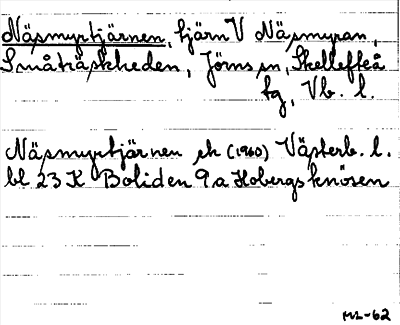 Näsmyrtjärnen, tjärn V Näsmyran,
Småträskheden, Jörns sn, Skellefteå
tg, Vb. l.
Näsmyrtjärnen ek (1960) Västerb. l.
bl 23 K Boliden 9a Hobergsknösen
ML-62